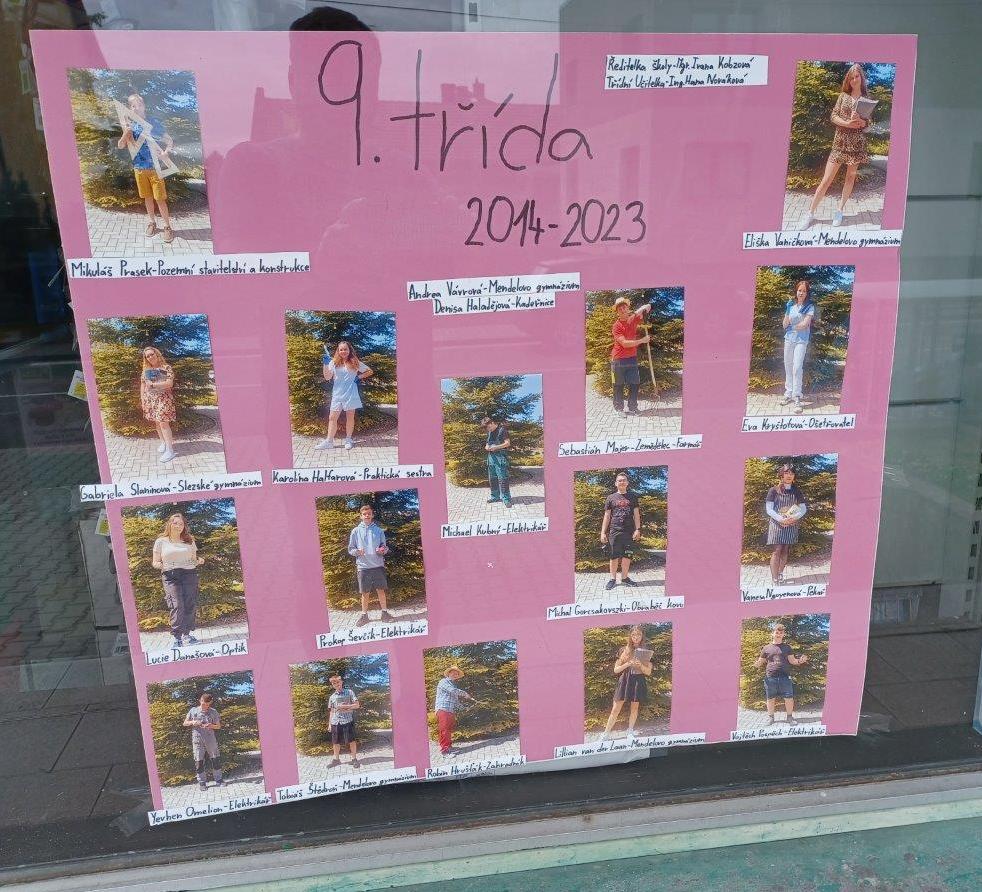 9. třída
2014-2023
Ředitelka školy-Mgr. Ivana Kobzová
Třídní Učitelka-Ing. Hana Nováková
Mikuláš Prasek-Pozemní stavitelství a konstrukce
Eliška Vaníčková-Mendelovo gymnázium
Andrea Vávrová-Mendelovo gymnázium
Denisa Haladějová-Kadeřnice
Gabriela Slaninová-Slezské gymnázium
Karolína Halfarová-Praktická sestra
Michael Kubný-Elektrikář
Sebastian Majer-Zemědělec-Farmář
Eva Kryštofová-Ošetřovatel
Lucie Današová-Optik
Prokop Ševčík-Elektrikář
Michal Gorcsakovszki-Obraběč kovů
Vanesa Nguyenová-Pekař
Yevhen Omelian-Elektrikář
Tobiáš Štědroň-Mendelovo gymnázium
Robin Hruščák-Zahradník
Lillian van der Laan-Mendelovo gymnázium
Vojtěch Pospěch-Elektrikář